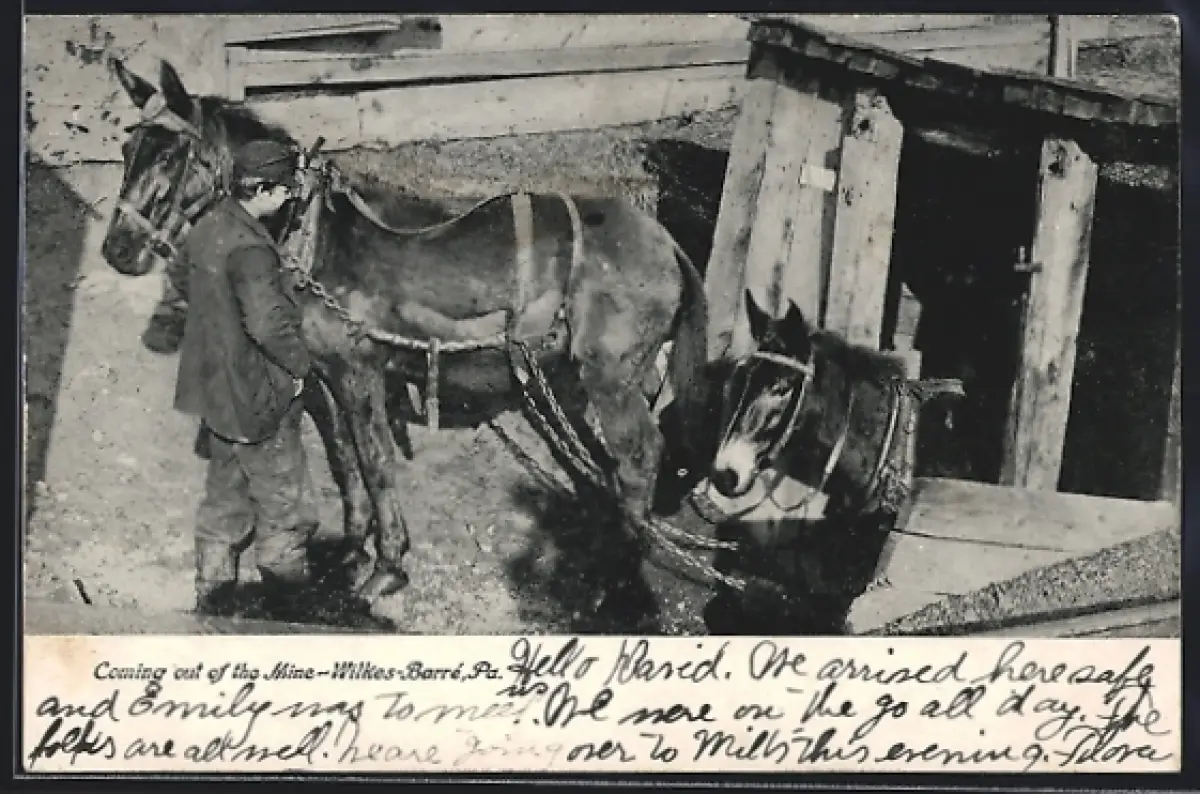 Coming out of the Mine-Wilkes-Barré, Pa. Hello David. We arrived here safe
and Emily was to meet us. We were on the go all day. The
folks are all well. We are going over to Mills this evening.